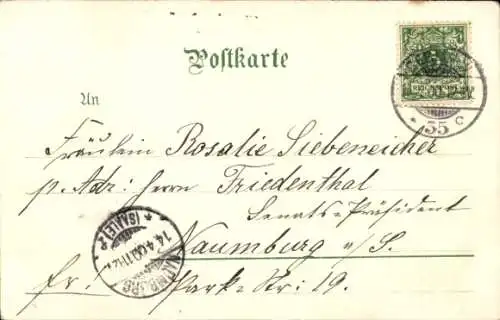 Postkarte
An
Fräulein Rosalie Siebeneicher
p. Adr: Herrn Friedenthal
Senats-Präsident
Naumburg a/S.
Fr: Park-Str: 19.
* 35 c
NAUMBURG
* (SAALE) *
14.4.00. 11-12